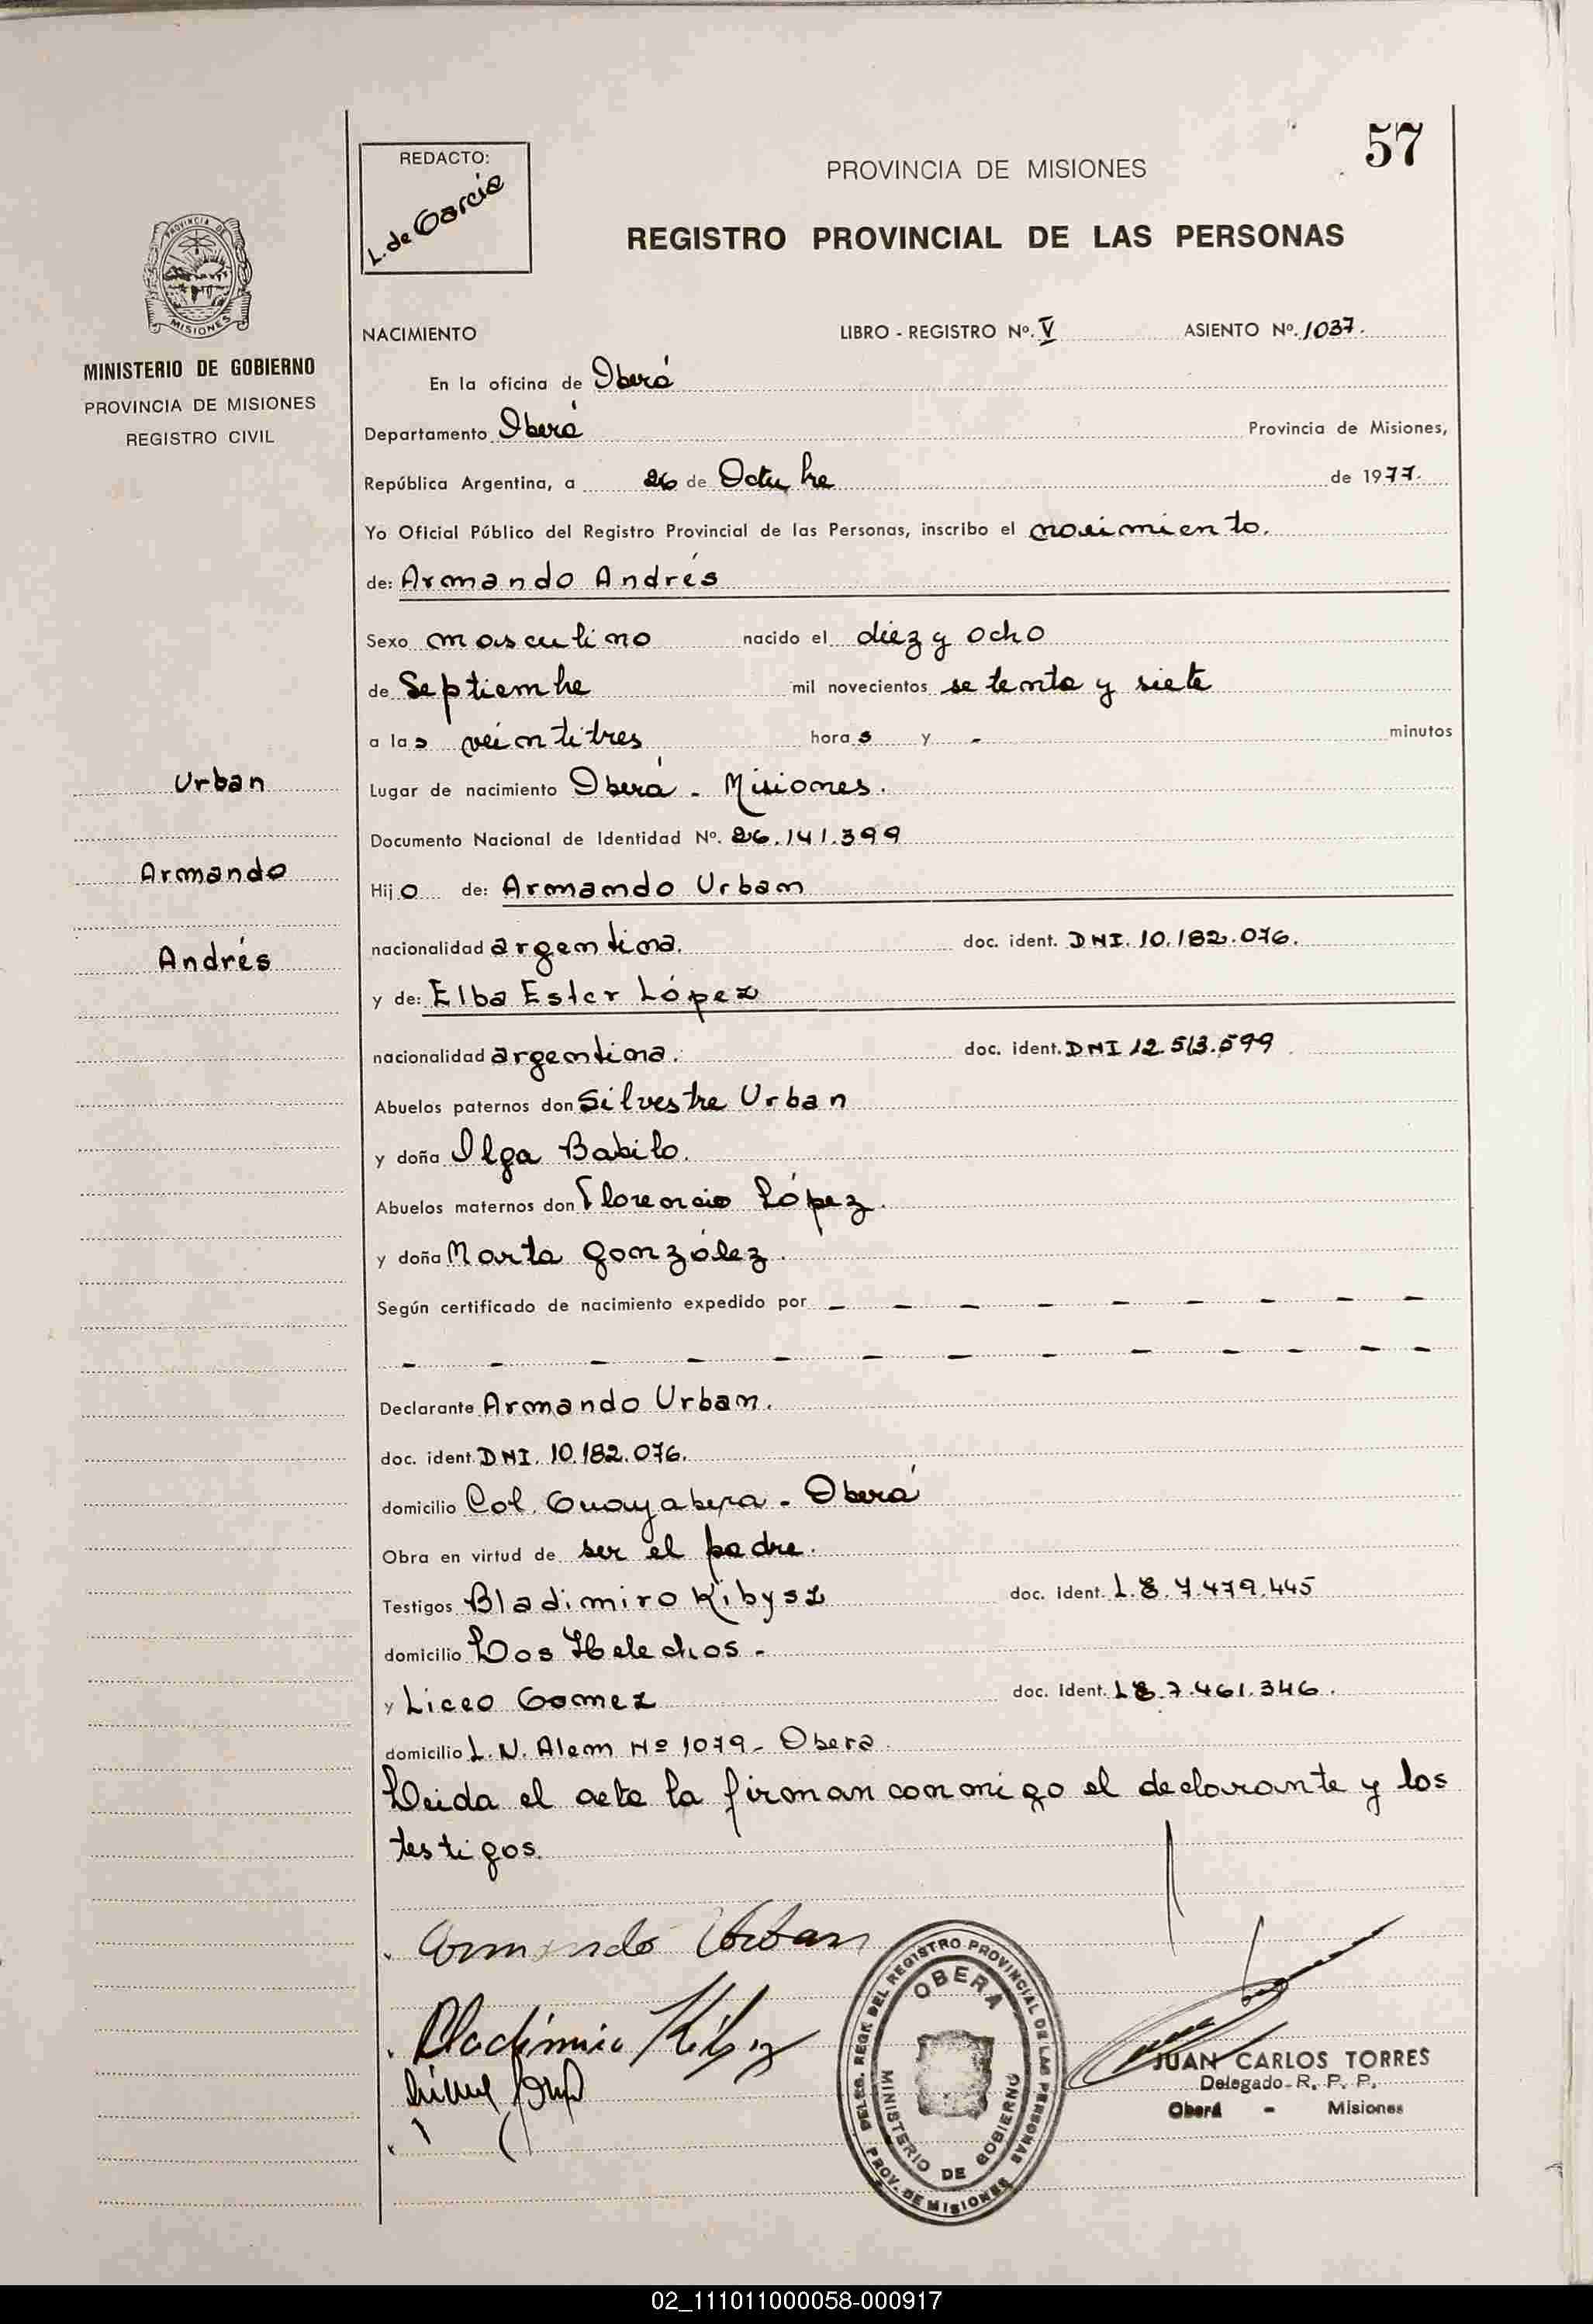 57
REDACTO:
L. de Garcia
PROVINCIA DE MISIONES
REGISTRO PROVINCIAL DE LAS PERSONAS
PROVINCIA DE
MISIONES
MINISTERIO DE GOBIERNO
PROVINCIA DE MISIONES
REGISTRO CIVIL
NACIMIENTO LIBRO - REGISTRO Nº. V ASIENTO Nº. 1037.
En la oficina de Oberá
Departamento Oberá Provincia de Misiones,
República Argentina, a 26 de Octubre de 1977.
Yo Oficial Público del Registro Provincial de las Personas, inscribo el nacimiento.
de: Armando Andrés
Sexo masculino nacido el diez y ocho
de Septiembre mil novecientos setenta y siete
a las veintitres horas y - minutos
Urban
Lugar de nacimiento Oberá - Misiones.
Documento Nacional de Identidad Nº. 26.141.399
Armando
Hijo de: Armando Urban
Andrés
nacionalidad argentina. doc. ident. DNI. 10.182.076.
y de: Elba Ester López
nacionalidad argentina. doc. ident. DNI 12.513.599
Abuelos paternos don Silvestre Urban
y doña Olga Babilo.
Abuelos maternos don Florencio López.
y doña Marta González.
Según certificado de nacimiento expedido por - - - - - - - - -
- - - - - - - - - - - - -
Declarante Armando Urban.
doc. ident. DNI. 10.182.076.
domicilio Col. Guayabera - Oberá
Obra en virtud de ser el padre.
Testigos Bladimiro Kibysz doc. ident. L.E 7.479.445
domicilio Los Helechos -
y Liceo Gomez doc. ident. LE 7.461.346.
domicilio L.N. Alem Nº 1079 - Obera
Leida el acta la firman conmigo el declarante y los
testigos.
Armando Urban
DELEG. REGR. DEL REGISTRO PROVINCIAL DE LAS PERSONAS
OBERA
MINISTERIO DE GOBIERNO
PROV. DE MISIONES
JUAN CARLOS TORRES
Delegado R. P. P.
Oberá - Misiones
02_111011000058-000917